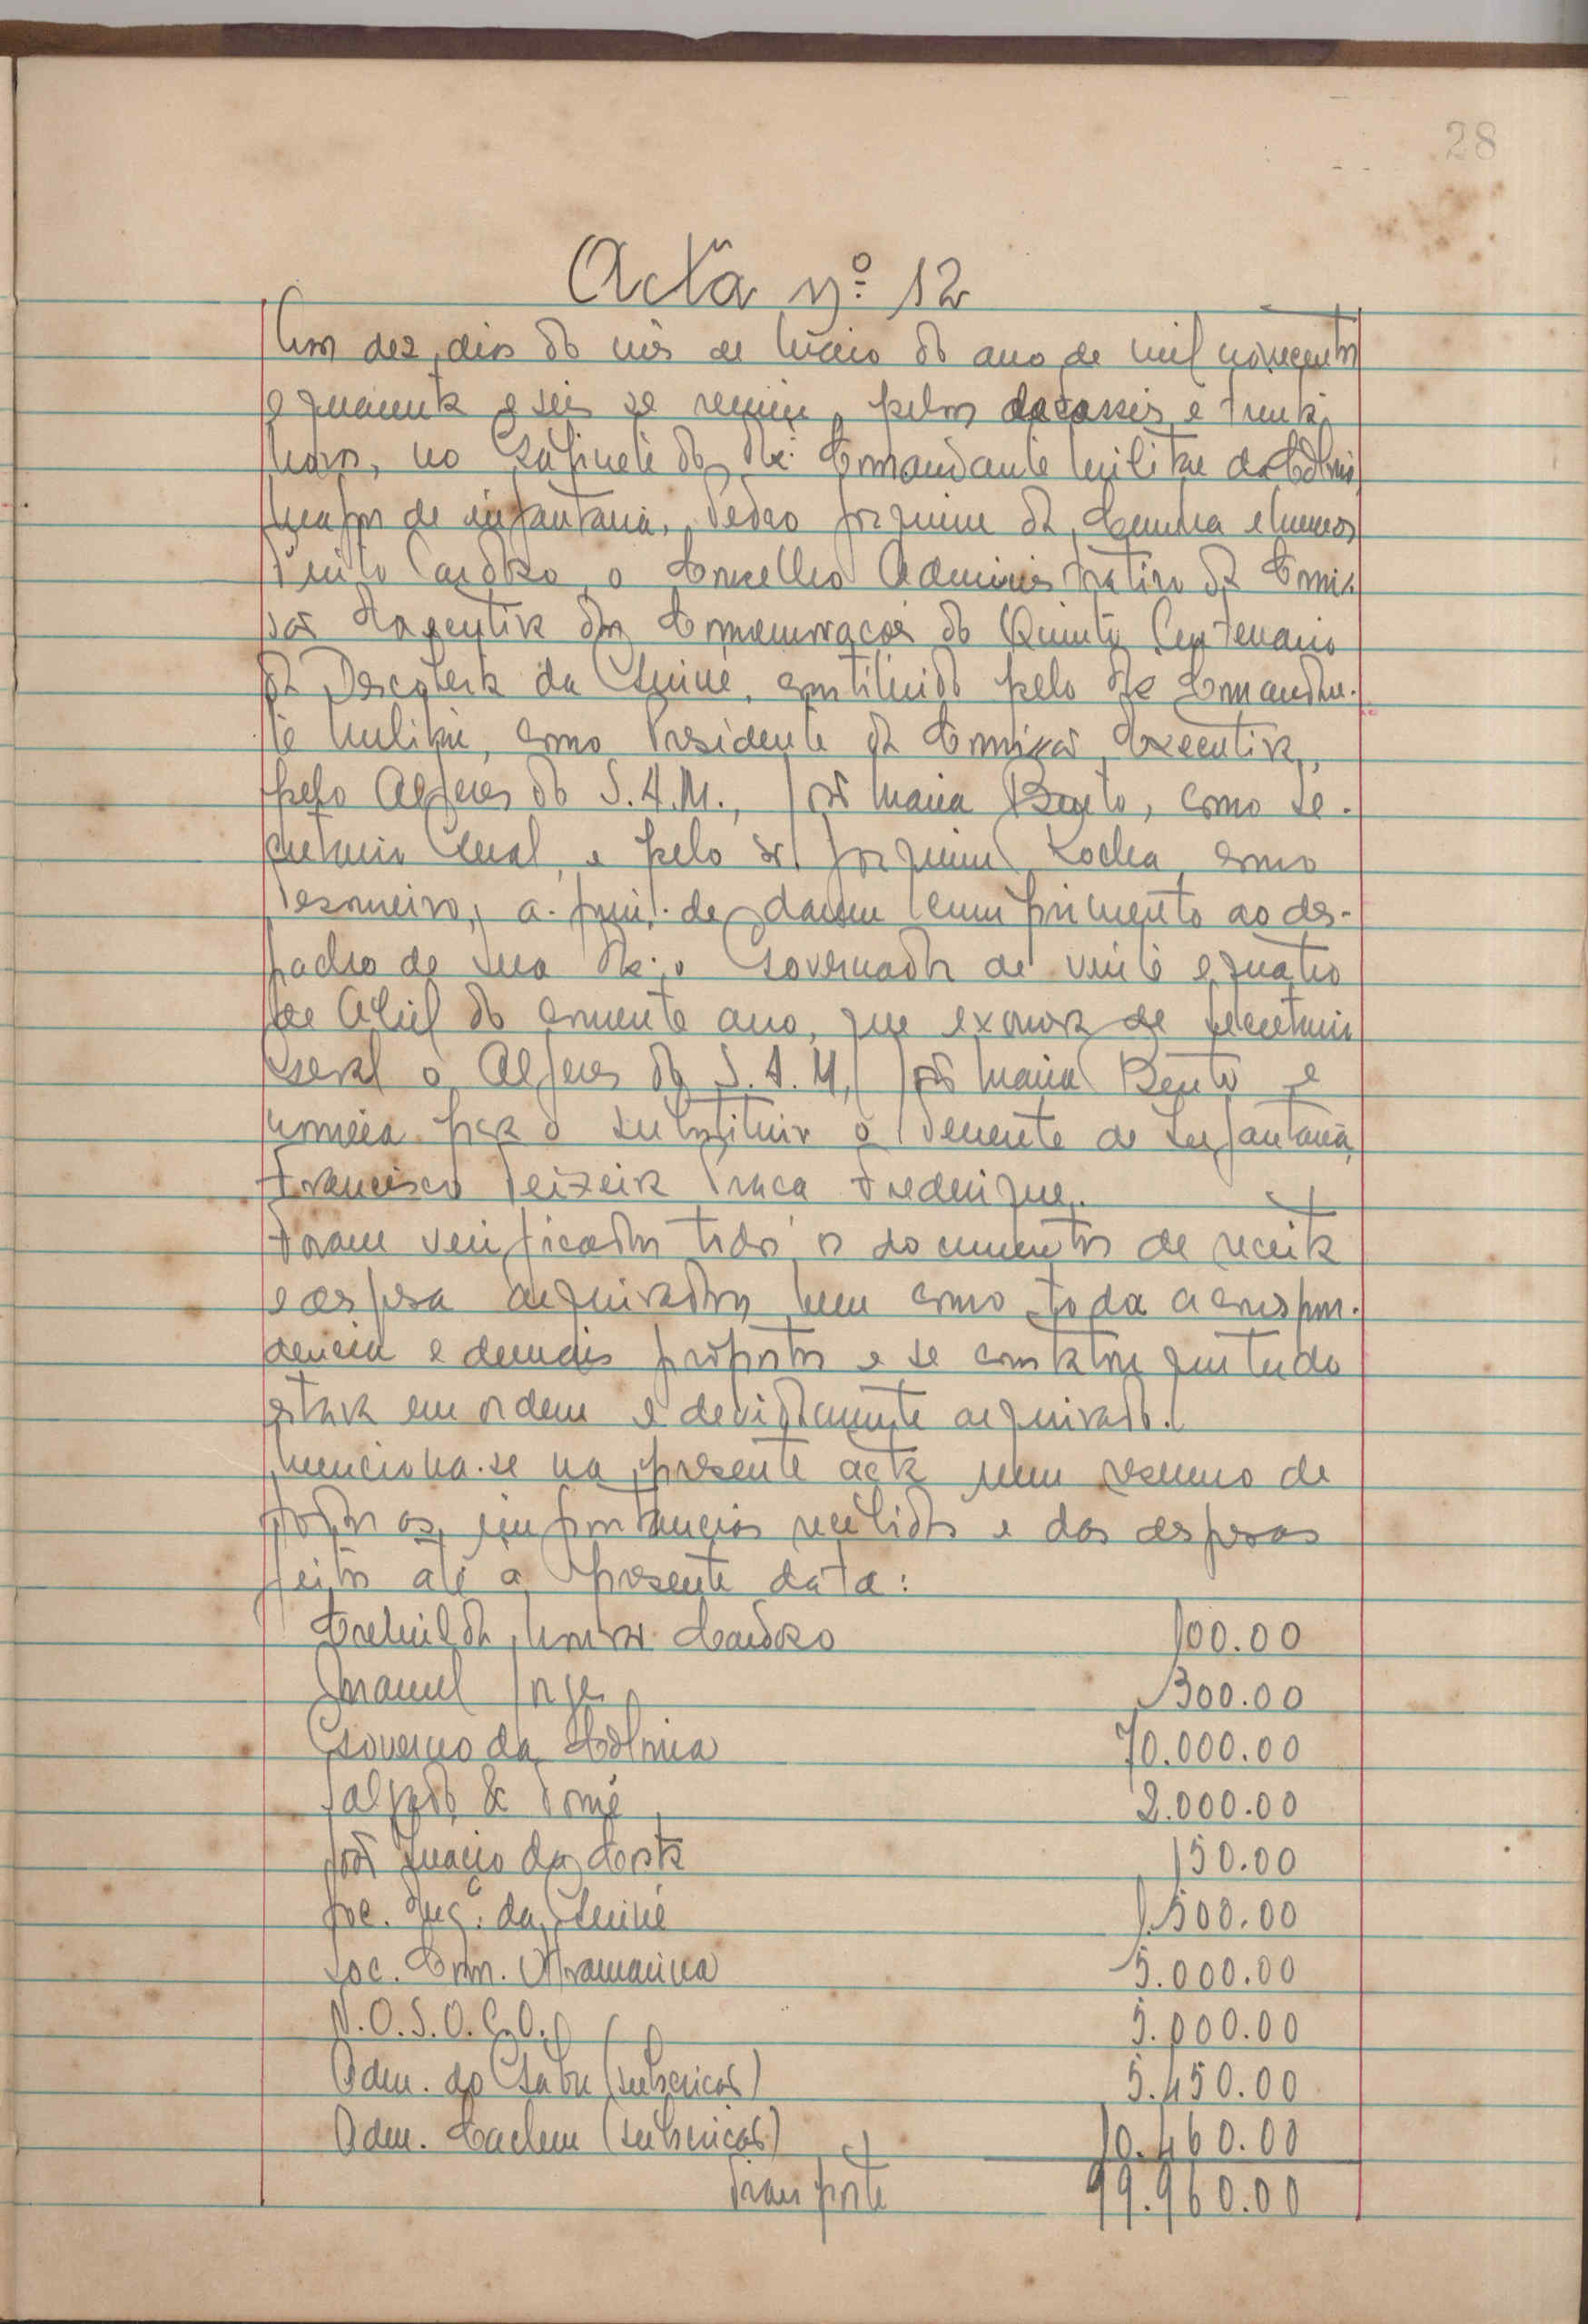 28
Acta n.º 12
Aos dez dias do mês de Maio do ano de mil novecentos
e quarenta e seis se reuniu, pelas dezasseis e trinta
horas, no Gabinete do Comandante Militar da Colónia
Major de infantaria, Pedro Joaquim da Cunha e Menezes
Pinto Cardoso, o Conselho Administrativo da Comis
são Executiva das Comemorações do Quinto Centenario
da Descoberta da Guiné, constituido pelo Comandan-
te Militar, como Presidente da Comissão Executiva,
pelo Alferes do S.A.M., José Maria Bento, como Se-
cretario Geral, e pelo sr. Joaquim Rocha, como
Tesoureiro, a fim de darem cumprimento ao des-
pacho de Sua o Governador de vinte e quatro
de Abril do corrente ano, que exonera de Secretario
Geral o Alferes do S.A.M, José Maria Bento e
nomeia para o substituir o Tenente de Infantaria,
Francisco Teixeira Frederique.
Foram verificados todos os documentos de receita
e despesa arquivados, bem como toda a correspon-
dencia e demais propostas e se constatou que tudo
estava em ordem e devidamente arquivado.
Menciona-se na presente acta um resumo de
todas as importancias recebidas e das despesas
feitas até a presente data:
Cardoso 100.00
Manuel Jorge 300.00
Governo da Colónia 70.000.00
& Tomé 2.000.00
José Inacio da Costa 150.00
Soc. da Guiné 1.500.00
Soc. Com. Ultramarina 5.000.00
N.O.S.O.C.O. 5.000.00
Adm. do Gabu (subscrição) 5.450.00
Adm. Cacheu (subscrição) 10.460.00
Transporte 99.960.00